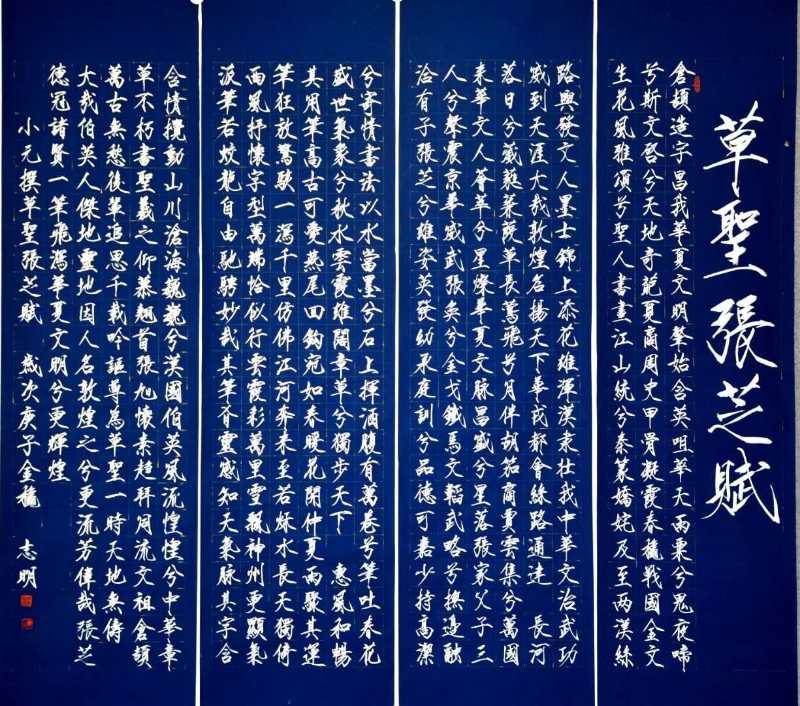 草聖張芝賦
倉頡造字昌我華夏文明肇始含英咀華天雨粟兮鬼夜啼
兮斯文啓兮天地奇葩夏商周史甲骨凝霞春秋戰國金文
生花風雅頌兮聖人書畫江山統兮秦篆嬌姹及至兩漢絲
路興發文人墨士錦上添花雄渾漢隶壯我中華文治武功
威到天涯大哉敦煌名揚天下華戎都會絲路通達 長河
落日兮葳蕤蒹葭草長鶯飛兮月伴胡笳商賈雲集兮萬國
来華文人薈萃兮星燦華夏文脉昌盛兮星落張家父子三
人兮聲震京華威武張奐兮金戈鐵馬文韜武略兮撫邊融
洽有子張芝兮雄姿英發幼承庭訓兮品德可嘉少持高潔
兮寄情書法以水當墨兮石上揮洒腹有萬卷兮筆吐春花
盛世氣象兮秋水雲霞雄闊章草兮獨步天下 惠風和暢
其用筆高古可愛燕尾回鈎宛如春暖花開仲夏雨驟其運
筆狂放驚駭一瀉千里仿佛江河奔来至若秋水長天獨倚
西風抒懷字型萬端恰似行雲霞彩萬里雪飄神州更顯氣
派筆若蛟龍自由馳騁妙哉其筆兮靈感知天氣脉其字含
含情攪動山川滄海巍巍兮漢國伯英風流惶惶兮中華章
草不朽書聖羲之仰慕翹首張旭懷素超拜同流文祖倉頡
萬古無愁後輩追思千載吟謳尊為草聖一時天地無儔
大哉伯英人傑地靈地因人名敦煌之兮更流芳偉哉張芝
德冠諸賢一筆飛瀉華夏文明兮更輝煌
小元撰草聖張芝賦 歲次庚子金秋 志明